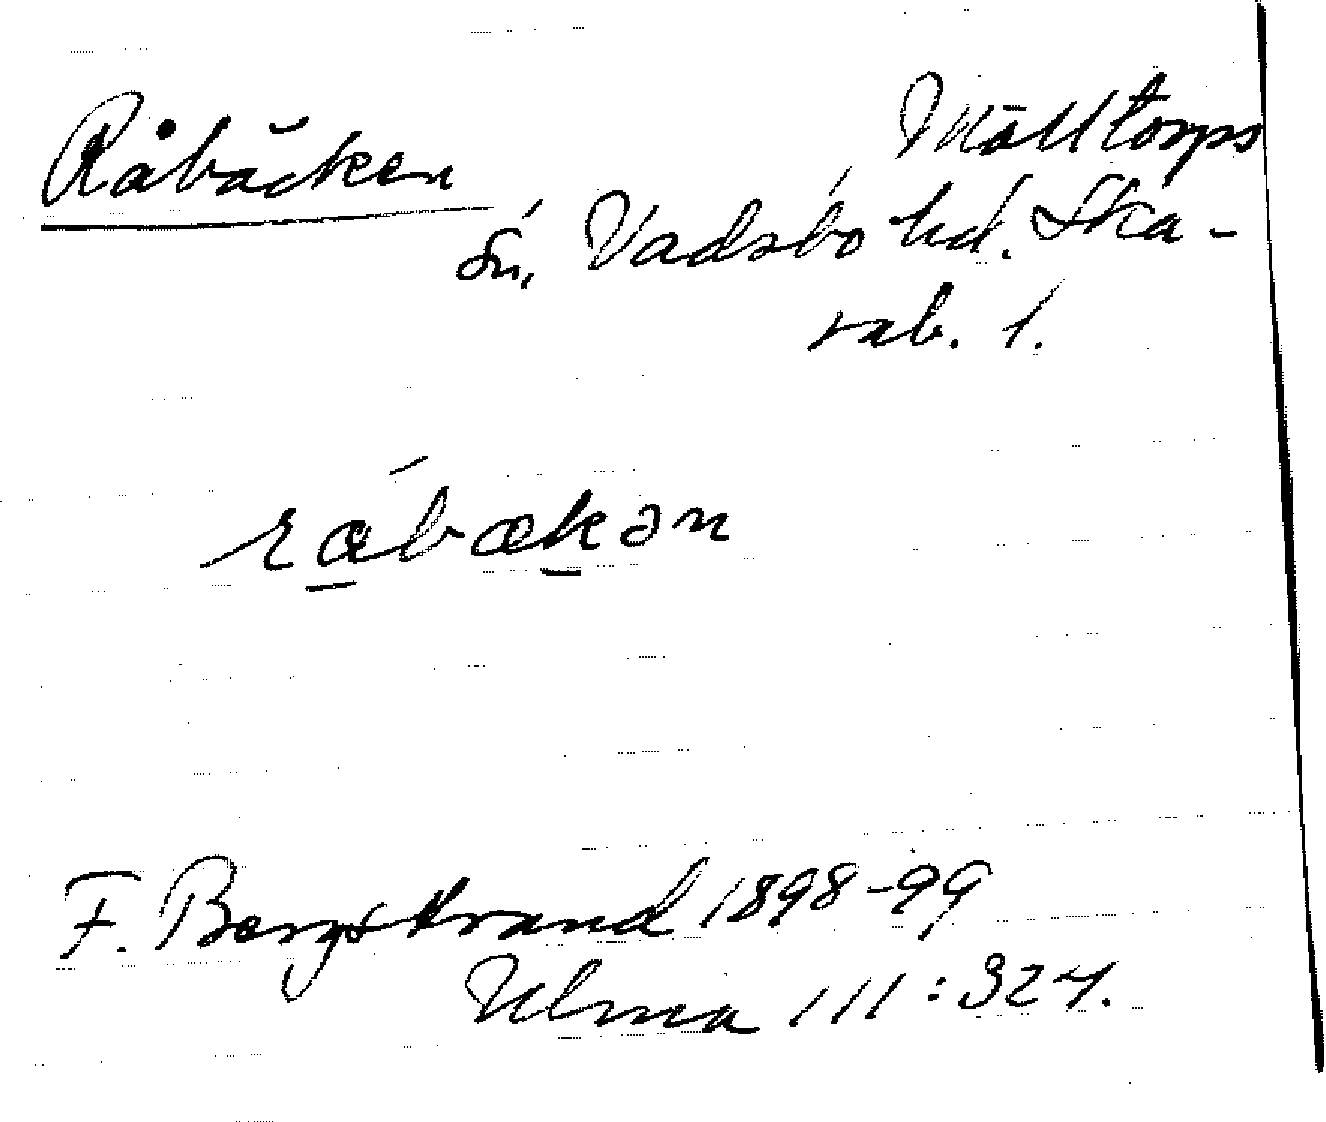 Råbäcken
Mölltorps
sn, Vadsbo hd. Ska-
rab. l.
råbækən
F. Bergstrand 1898-99
Ulma 111:324.